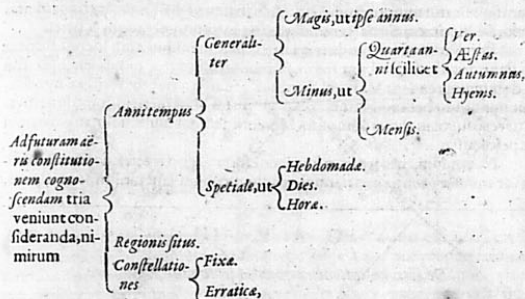 Ad futuram aë-
ris constitutio-
nem cogno-
scendam tria
veniunt con-
sideranda, ni-
mirum
Anni tempus
Generali-
ter
Magis, ut ipse annus.
Minus, ut
Quarta an-
ni scilicet
Ver.
Æstas.
Autumnus,
Hyems.
Mensis.
Speciale, ut
Hebdomadæ.
Dies.
Horæ.
Regionis situs.
Constellatio-
nes
Fixæ.
Erraticæ,